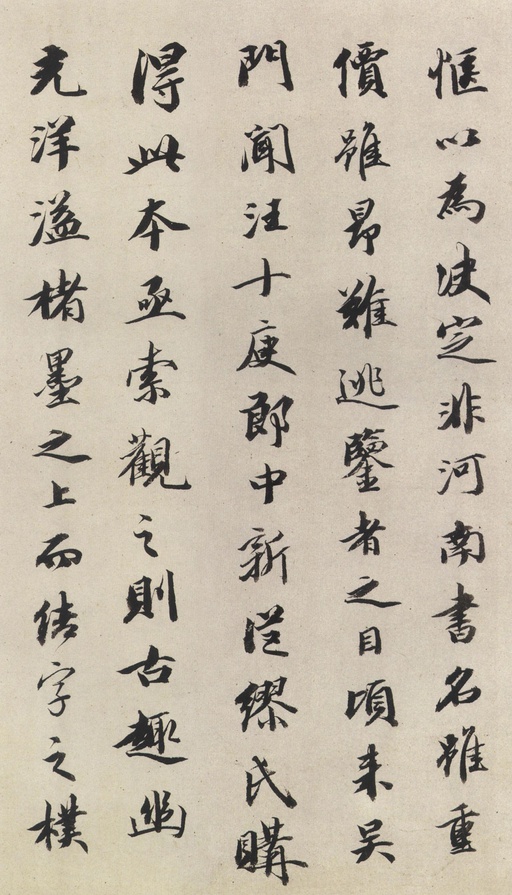 惬以為決定非河南書名雖重
價雖昂難逃鑒者之目頃来吴
門聞汪十庚郎中新從繆氏購
得此本亟索觀之則古趣幽
光洋溢楮墨之上而结字之樸